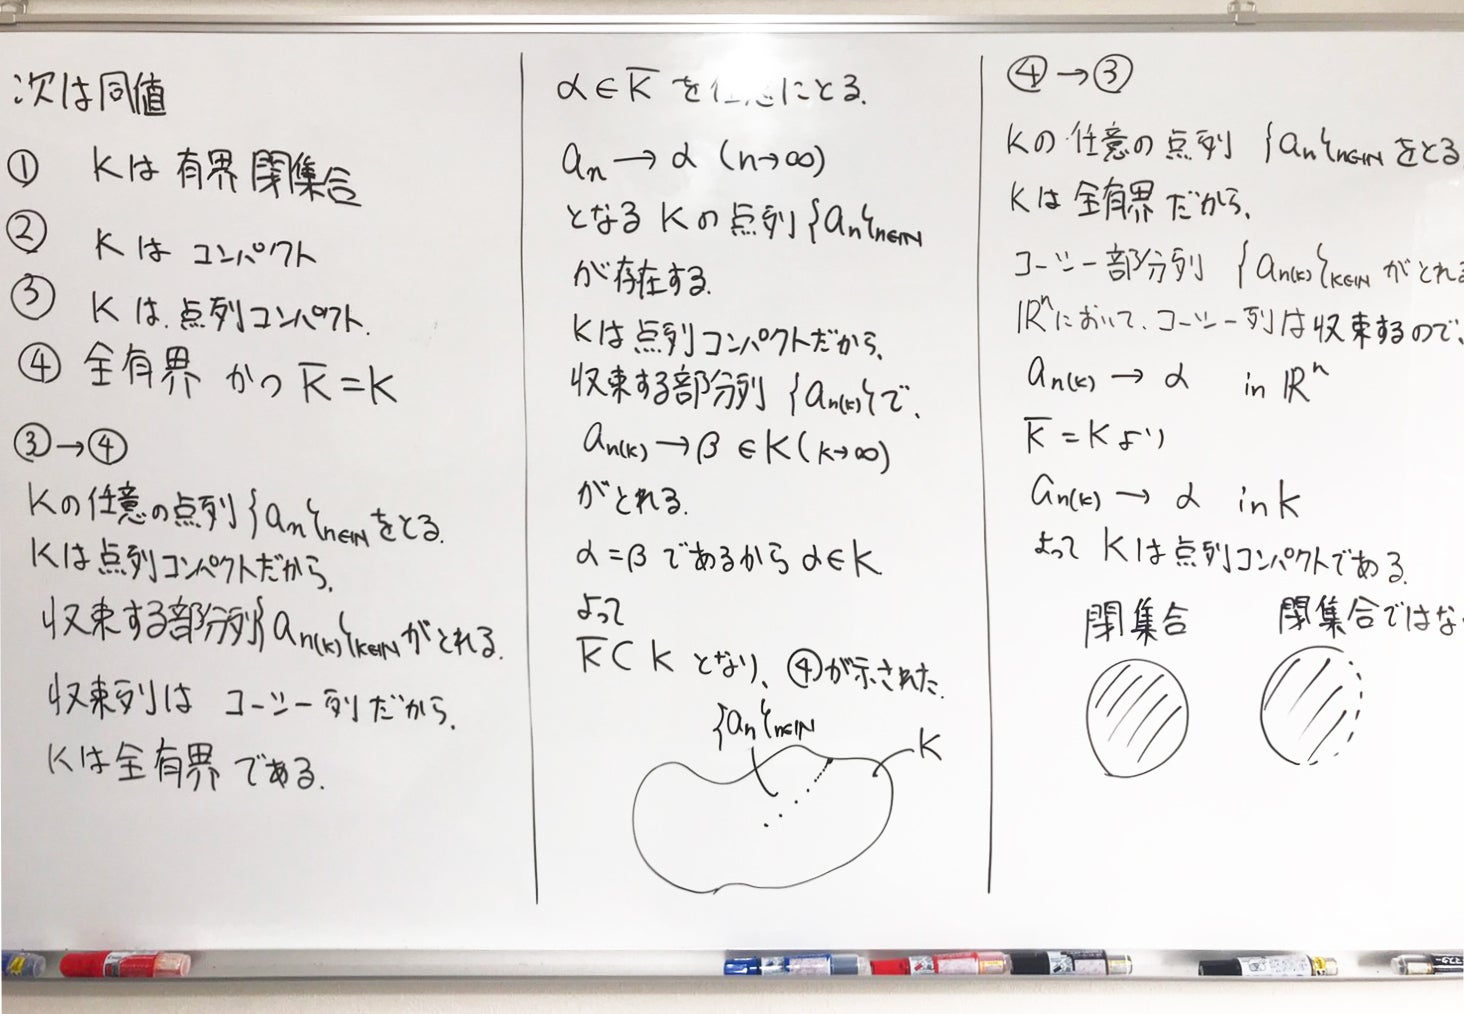 次は同値
① Kは 有界 閉集合
② Kは コンパクト
③ Kは 点列コンパクト.
④ 全有界 かつ K̅=K
③→④
Kの任意の点列{an}n∈ℕをとる.
Kは点列コンパクトだから,
収束する部分列{an(k)}k∈ℕがとれる.
収束列は コーシー列だから,
Kは全有界である.
α∈K̅ を任意にとる.
an→α (n→∞)
となる Kの点列{an}n∈ℕ
が存在する.
Kは点列コンパクトだから,
収束する部分列{an(k)}で,
an(k)→β∈K(k→∞)
がとれる.
α=βであるから α∈K
よって
K̅⊂K となり、④が示された.
{an}n∈ℕ
K
④→③
Kの任意の点列 {an}n∈ℕをとる
Kは全有界だから,
コーシー部分列 {an(k)}k∈ℕがとれる
ℝⁿにおいて、コーシー列は収束するので、
an(k)→α in ℝⁿ
K̅=Kより
an(k)→α in K
よって Kは点列コンパクトである.
閉集合 閉集合ではな